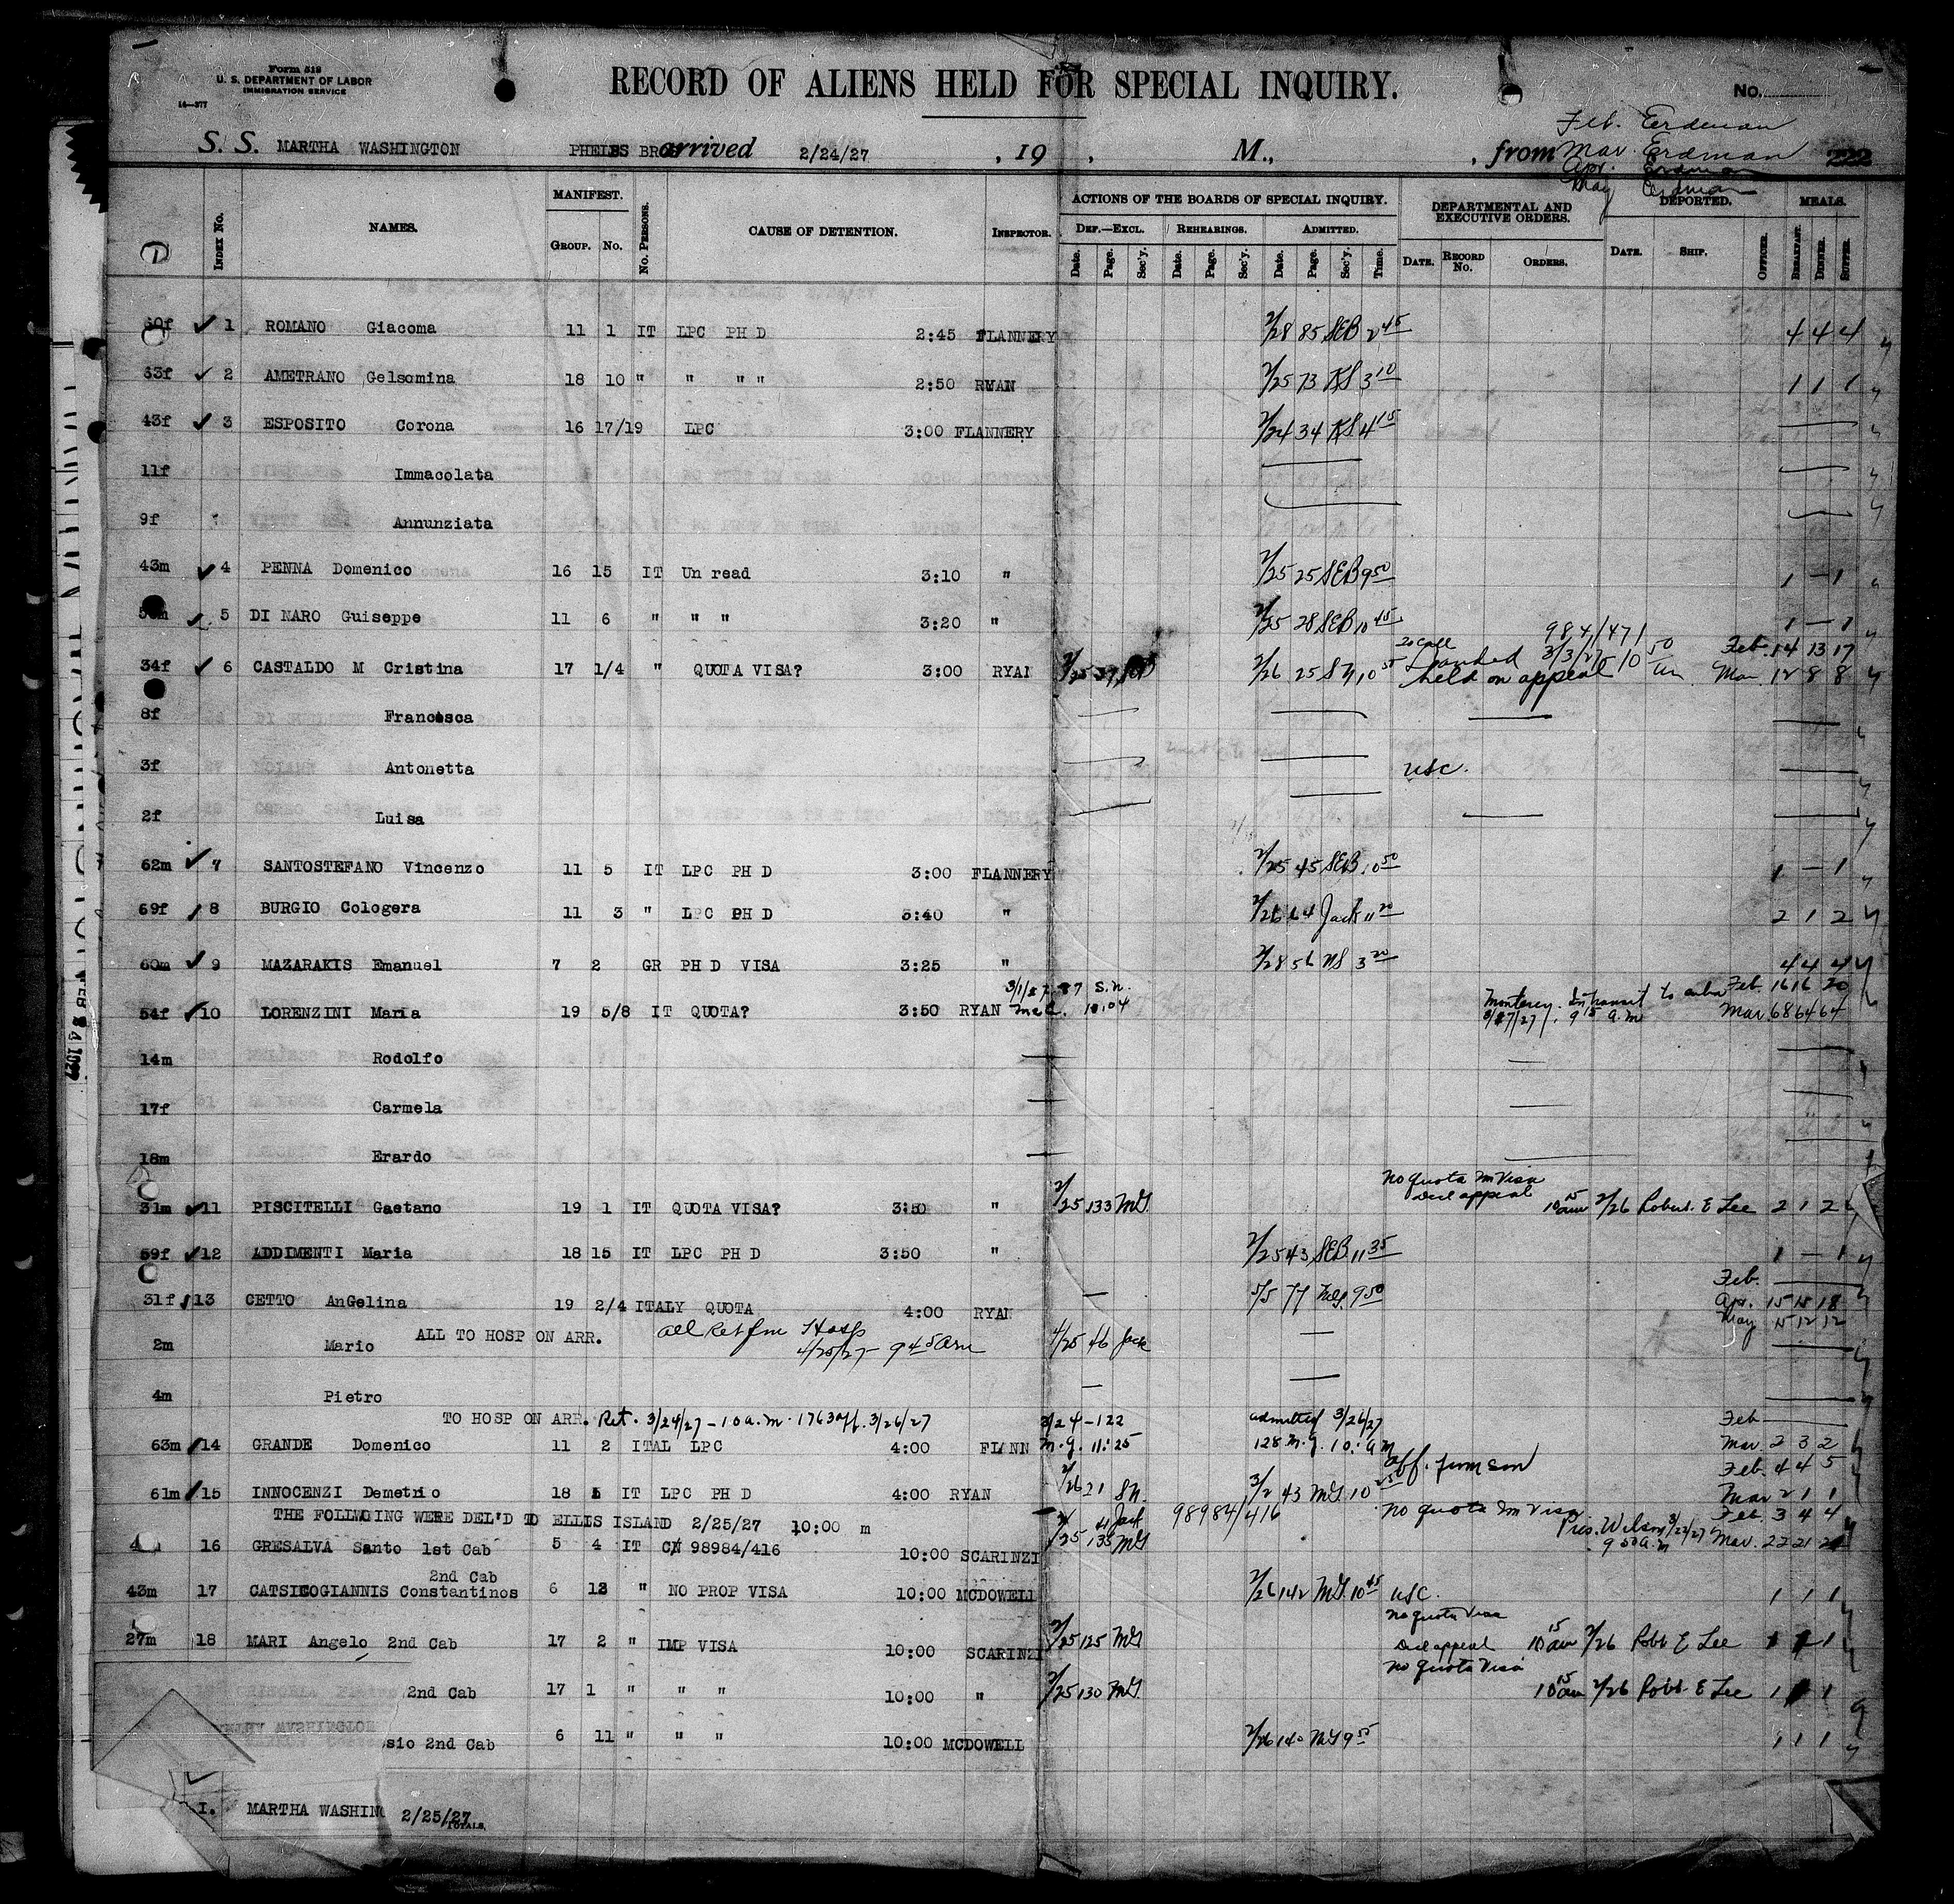 Form 518
U. S. DEPARTMENT OF LABOR
IMMIGRATION SERVICE
14—377
RECORD OF ALIENS HELD FOR SPECIAL INQUIRY.
No.
Feb. Erdman
S. S. MARTHA WASHINGTON PHELPS BROS arrived 2/24/27 , 19 , M., , from Mar. Erdman 222
Apr. Erdman
May Erdman
INDEX No. NAMES. MANIFEST. GROUP. No. No. PERSONS. CAUSE OF DETENTION. INSPECTOR.
ACTIONS OF THE BOARDS OF SPECIAL INQUIRY. DEPARTMENTAL AND EXECUTIVE ORDERS. DEPORTED. MEALS.
DEF.—EXCL. REHEARINGS. ADMITTED.
Date. Page. Sec'y. Date. Page. Sec'y. Date. Page. Sec'y. Time. DATE. RECORD No. ORDERS. DATE. SHIP. OFFICER. BREAKFAST. DINNER. SUPPER.
60f ✓ 1 ROMANO Giacoma 11 1 IT LPC PH D 2:45 FLANNERY 2/28 85 SEB 2 45 4 4 4
53f ✓ 2 AMETRANO Gelsomina 18 10 " " " " 2:50 RYAN 2/25 73 KS 3 10 1 1 1
43f ✓ 3 ESPOSITO Corona 16 17/19 LPC 3:00 FLANNERY 2/24 34 KS 4 15
11f Immacolata
9f Annunziata
43m ✓ 4 PENNA Domenico 16 15 IT Un read 3:10 " 2/25 25 SEB 9 50 1 — 1
5 DI MARO Guiseppe 11 6 " " " 3:20 " 2/25 28 SEB 10 45 1 — 1
984/471
Landed 3/3/27 10 50 am Feb. 14 13 17
34f ✓ 6 CASTALDO M Cristina 17 1/4 " QUOTA VISA? 3:00 RYAN 2/25 2/26 25 SN 10 held on appeal Mar. 12 8 8
8f Francesca
3f Antonetta USC.
2f Luisa
62m ✓ 7 SANTOSTEFANO Vincenzo 11 5 IT LPC PH D 3:00 FLANNERY 2/25 45 SEB 10 50 1 — 1
69f 8 BURGIO Cologera 11 3 " LPC PH D 3:40 " 2/26 64 Jack 11 20 2 1 2
60m ✓ 9 MAZARAKIS Emanuel 7 2 GR PH D VISA 3:25 " 2/28 56 NS 3 20 4 4 4
3/1/27 87 S.N. Monterey. In transit to Cuba Feb. 16 16 20
54f 10 LORENZINI Maria 19 5/8 IT QUOTA? 3:50 RYAN 10:04 9 15 a.m Mar. 68 64 64
14m Rodolfo
17f Carmela
18m Erardo
No quota Im Visa
31m ✓ 11 PISCITELLI Gaetano 19 1 IT QUOTA VISA? 3:50 " 2/25 133 MG. appeal 10 15 am 2/26 Robert E Lee 2 1 2
59f ✓ 12 ADDIMENTI Maria 18 15 IT LPC PH D 3:50 " 2/25 43 SEB 11 35 1 — 1
Feb.
31f 13 CETTO AnGelina 19 2/4 ITALY QUOTA 4:00 RYAN 5/5 77 MG. 9 50 Apr. 15 15 18
ALL TO HOSP ON ARR. All Ret fm Hosp May 15 12 12
2m Mario 4/25/27 9 45 am 4/25 46 Jack
4m Pietro
TO HOSP ON ARR. Ret. 3/24/27 – 10 a.m. 3/26/27 3/24 – 122 admitted 3/26/27 Feb
63m 14 GRANDE Domenico 11 2 ITAL LPC 4:00 FLANN M.G. 11:25 128 M.G. 10: a m Mar. 2 3 2
aff. from son Feb. 4 4 5
61m 15 INNOCENZI Demetrio 18 1 IT LPC PH D 4:00 RYAN 2/26 21 SN. 3/2 43 MG 10 Mar 2 1 1
THE FOLLWOING WERE DEL'D TO ELLIS ISLAND 2/25/27 10:00 m 98984/416 No quota Im Visa Feb. 3 4 4
16 GRESALVA Santo 1st Cab 5 4 IT 98984/416 10:00 SCARINZI 2/25 135 MG Pres. Wilson 3/22/27 9 50 a.m Mar. 22 21
2nd Cab
43m 17 CATSICOGIANNIS Constantinos 6 13 " NO PROP VISA 10:00 MCDOWELL 2/26 142 MG. 10 45 USC. 1 1 1
No quota Visa
27m 18 MARI Angelo 2nd Cab 17 2 " IMP VISA 10:00 SCARINZI 2/25 125 MG appeal 10 15 am 2/26 Robt E Lee 1 1 1
No quota Visa
2nd Cab 17 1 " " " 10:00 " 2/25 130 MG. 10 15 am 2/26 Robt. E Lee 1 1
sio 2nd Cab 6 11 " " " 10:00 MCDOWELL 2/26 140 MG 9 55 1 1 1
I. MARTHA WASHING 2/25/27
TOTALS.